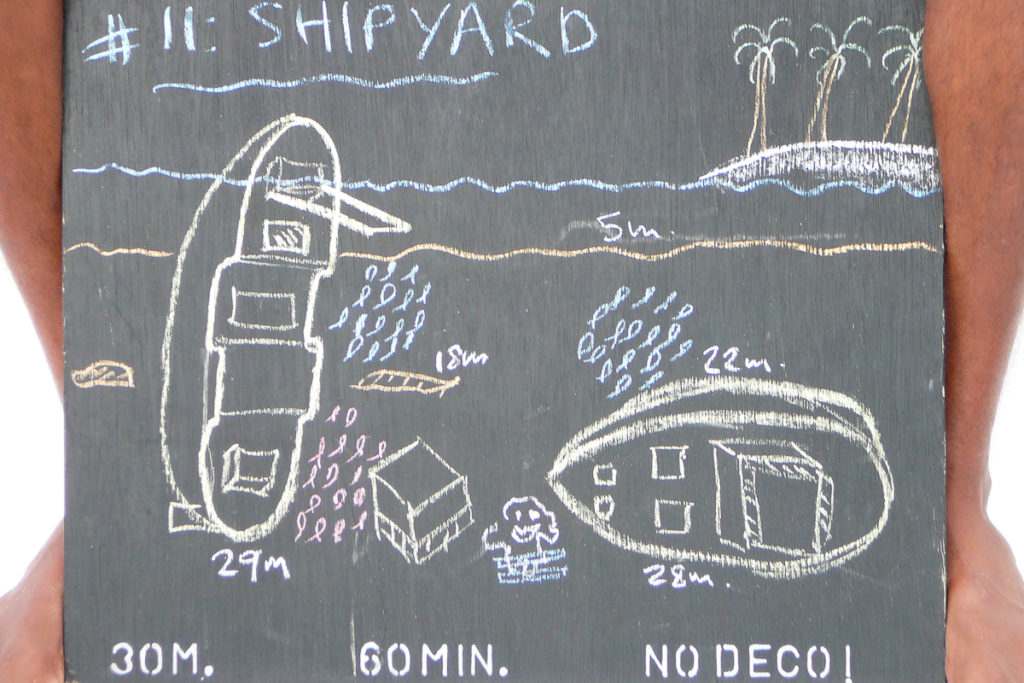 #11: SHIPYARD
5m.
18m
22m.
29m
28m.
30M. 60MIN. NO DECO!